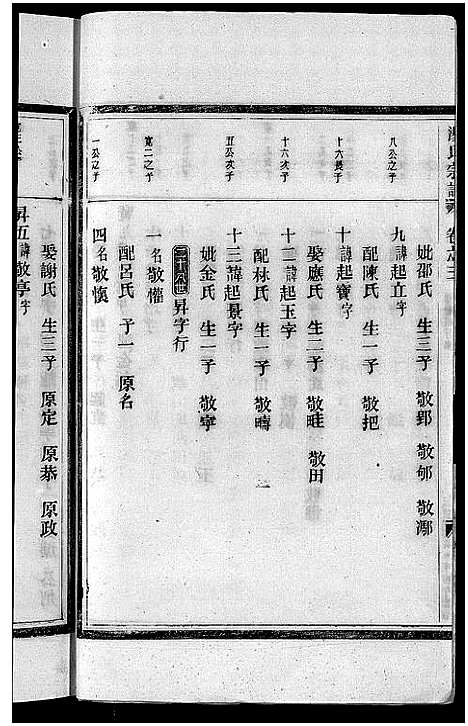 氏宗譜 卷之三
妣邵氏 生三子 敬郢 敬郇 敬鄹
八公之子
九諱起立字
配陳氏 生一子 敬把
十六長子
十諱起寶字
娶應氏 生二子 敬畦 敬田
十六次子
十二諱起玉字
配林氏 生二子 敬疇 一
五公次子
十三諱起景字
妣金氏 生一子 敬寧
昇字行
第二之子
一名敬懽
配呂氏 子一 原名
一公之子
四名敬慎
昇五諱敬亭字
娶謝氏 生三子 原定 原恭 原政